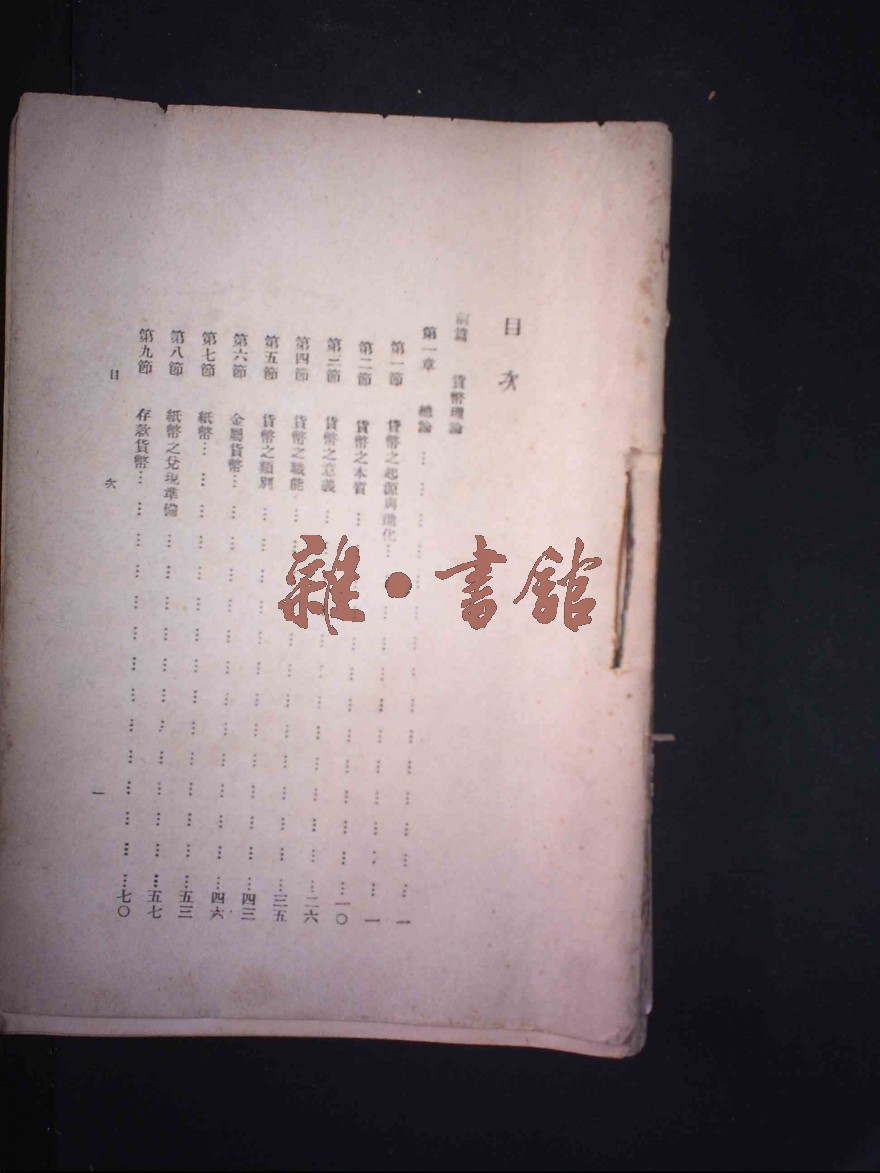 目次
前篇 貨幣理論
第一章 總論………………一
第一節 貨幣之起源與進化………………一
第二節 貨幣之本質………………一〇
第三節 貨幣之意義………………二六
第四節 貨幣之職能………………三五
第五節 貨幣之類別………………四三
第六節 金屬貨幣………………四六
第七節 紙幣………………五三
第八節 紙幣之兌現準備………………五七
第九節 存款貨幣………………七〇
目次 一
雜·書館